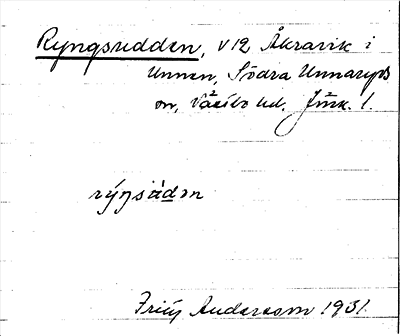 Ryngsudden, V 12 Åkravik i
Unnen, Södra Unnaryds
sn, Västbo hd. Jönk. l.
rýŋsùdən
Fritz Andersson 1931.